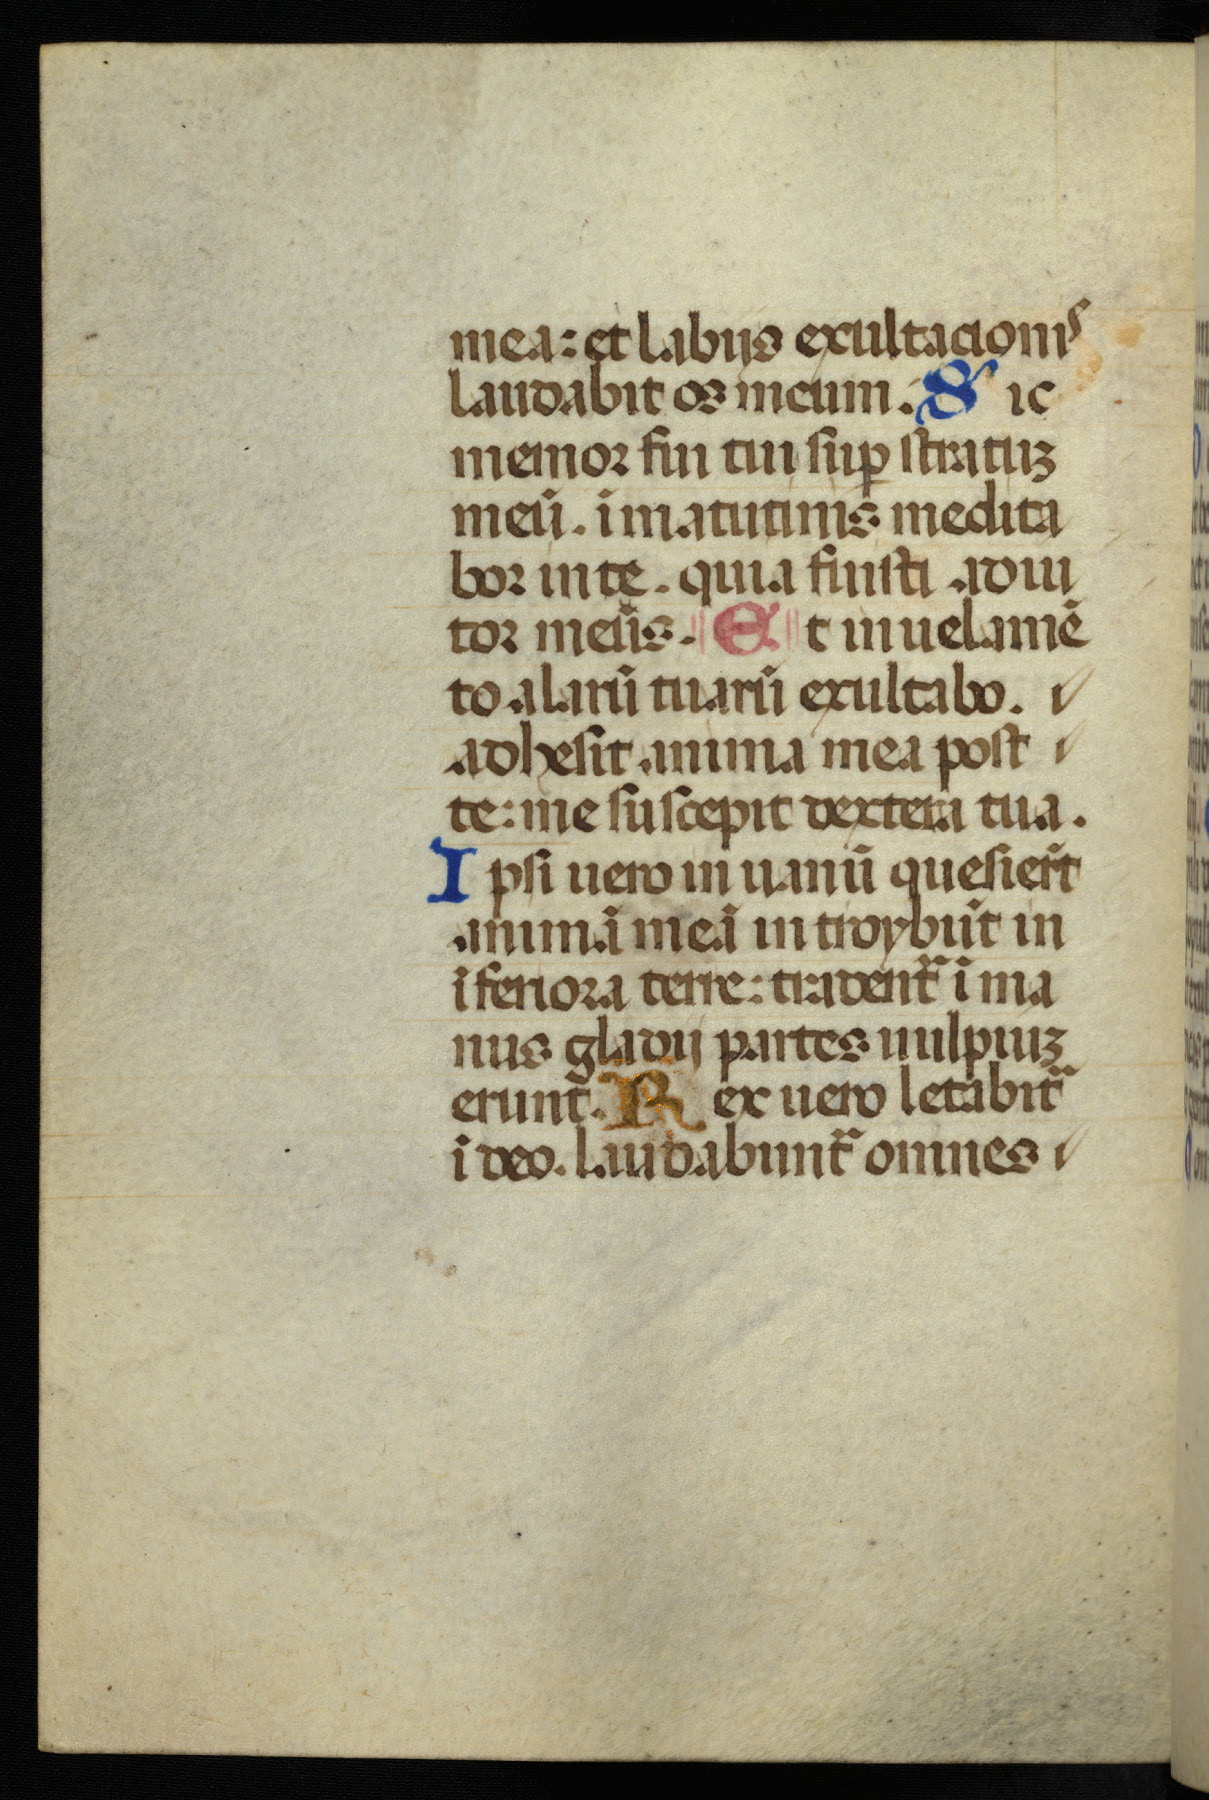 mea: et labijs exultacionis
laudabit os meum. Sic
memor fui tui sup stratuȝ
meū. ī matutinis medita
bor in te. quia fuisti adiu
tor meūs. Et in uelamē
to alarū tuarū exultabo.
adhesit anima mea post
te: me suscepit dextera tua.
Ipsi uero in uanū quesiert̄
animā meā introybūt in
īferiora terre: tradent̄ ī ma
nus gladij partes uulpiuȝ
erunt. Rex uero letabit̄
ī deo. laudabunt̄ omnes